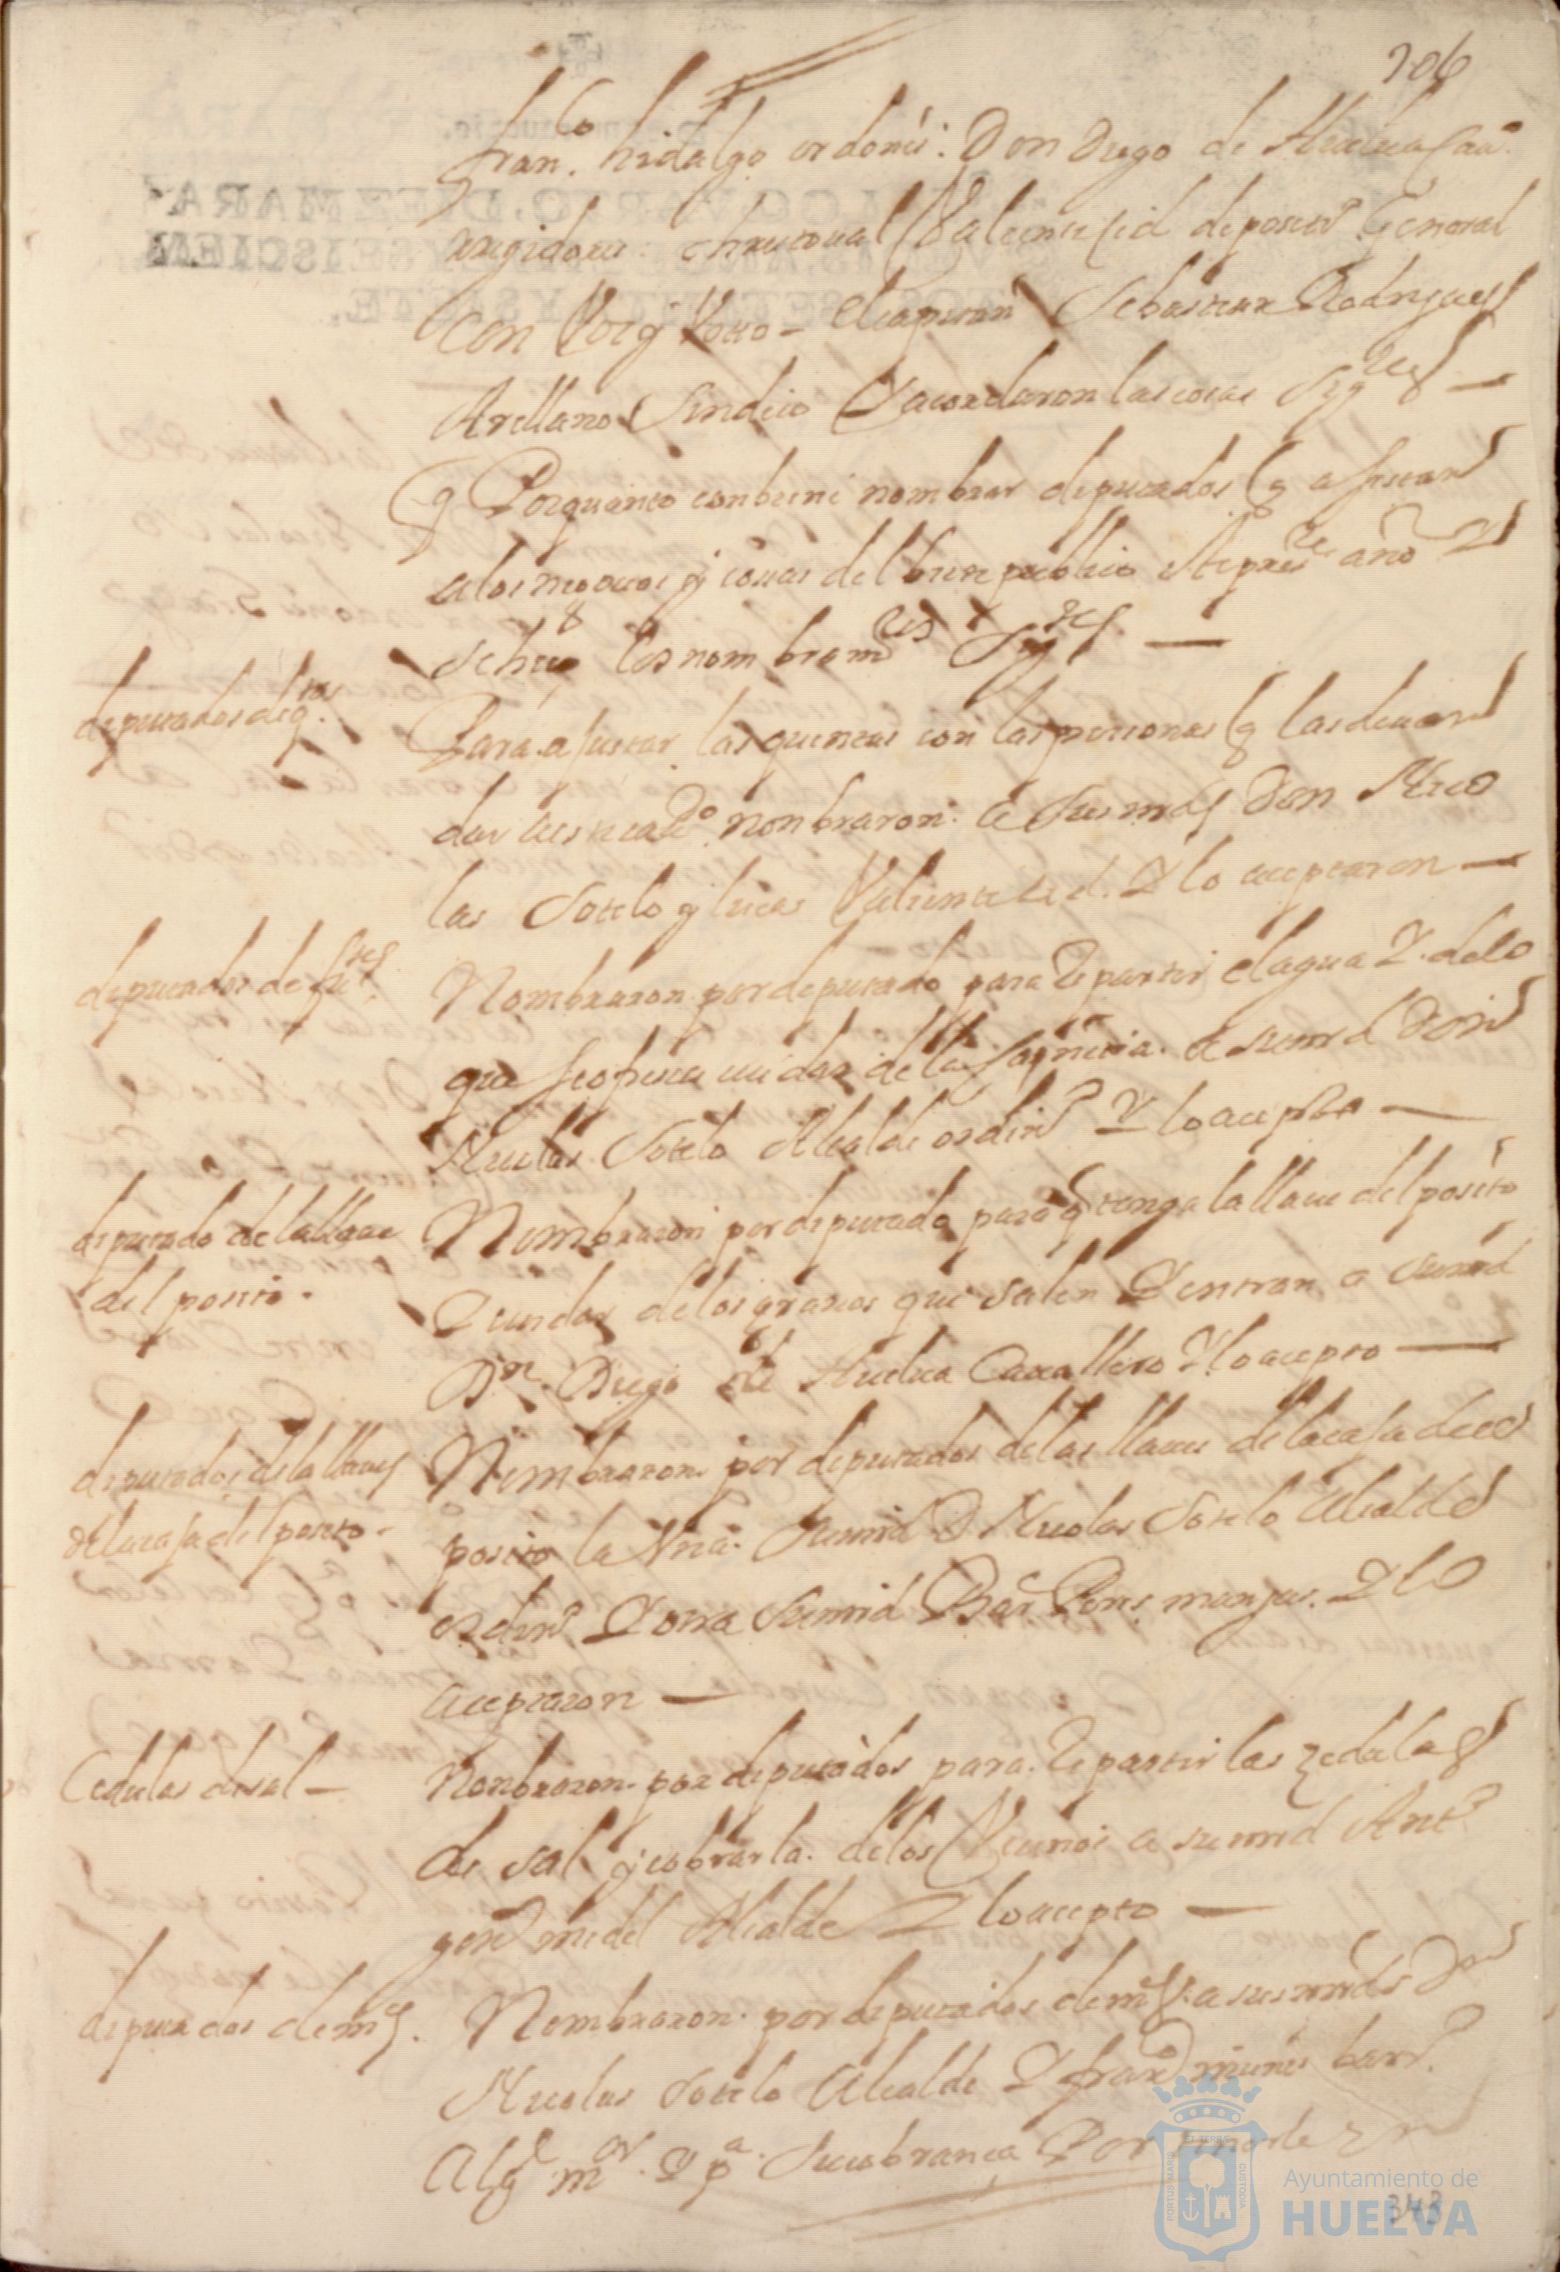 206
fran.co hidalgo ordoñes. Don Diego de Huelua Cauo.
regidores. christoual Valiente Cid depositro. General
con Voz y Voto – el capitan Sebastian Rodrigues
Arellano Sindico Y acordaron las cosas sigtes —
Por quanto conbiene nombrar deputados q asistan
a los negocios y cosas del bien publico este preste año
se hizo los nombramtos sigtes —
deputados de qtas.
Para ajustar las quentas con las personas q las deuan
dar nonbraron. a sus mrds Don Nico
las Sotelo y lucas Valiente Cid. Y lo aceptaron —
deputados de fuetes.
Nombraron por deputado para Repartir el agua Y. de lo
que se ofresiere cuidar de la. a su mrd Don
Nicolas Sotelo Alcalde ordinro Y lo acepto —
deputado de la llaue
del posito.
Nombraron por deputado para q tenga la llaue del posito
Y cuidar de los granos que salen Y entran a su mrd
Dn. Diego de Huelua Cauallero Y lo acepto —
deputados de la llaues
de la caja del posito -
Nombraron por deputados de las llaues de la caja de el
posito la Vna. su mrd D Nicolas Sotelo Alcalde
ordinro Y otra su mrd Bar. Pons. manjas. Y lo
aceptaron —
Cedulas de sal —
Nonbraron por deputados para. Repartir las zedulas
de sal y cobrarla. de los Vecinos a su mrd Anto
gero midel Alcalde Y lo acepto —
deputados de ms.
Nombraron. por deputados de ms. a sus mrds Don
Nicolas Sotelo Alcalde Y franco nunes barro.
Algl mor. Y pa. su cobranca Por
343
Ayuntamiento de
HUELVA
PORTUS MARIS
ET TERRAE
CUSTODIA